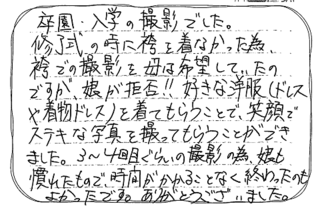 卒園・入学の撮影でした。
修了式の時に袴を着なかった為、
袴での撮影を母は希望していたの
ですが、娘が拒否!! 好きな洋服(ドレス
や着物ドレス)を着てもらうことで、笑顔で
ステキな写真を撮ってもらうことができ
ました。3〜4回目ぐらいの撮影の為、娘も
慣れたもので、時間がかかることなく終わったのも
よかったです。ありがとうございました。